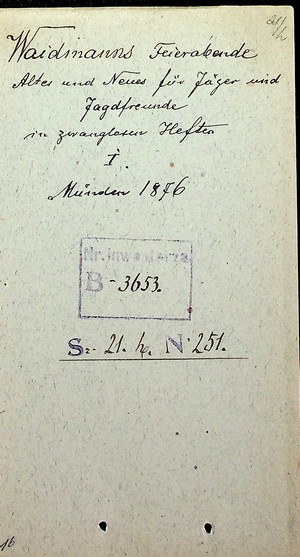 21/h
Waidmanns Feierabende
Altes und Neues für Jäger und
Jagdfreunde
in zwanglosen Heften
I.
Münden 1876
Nr. inwentarza
B - 3653.
S. 21. h. N 251.